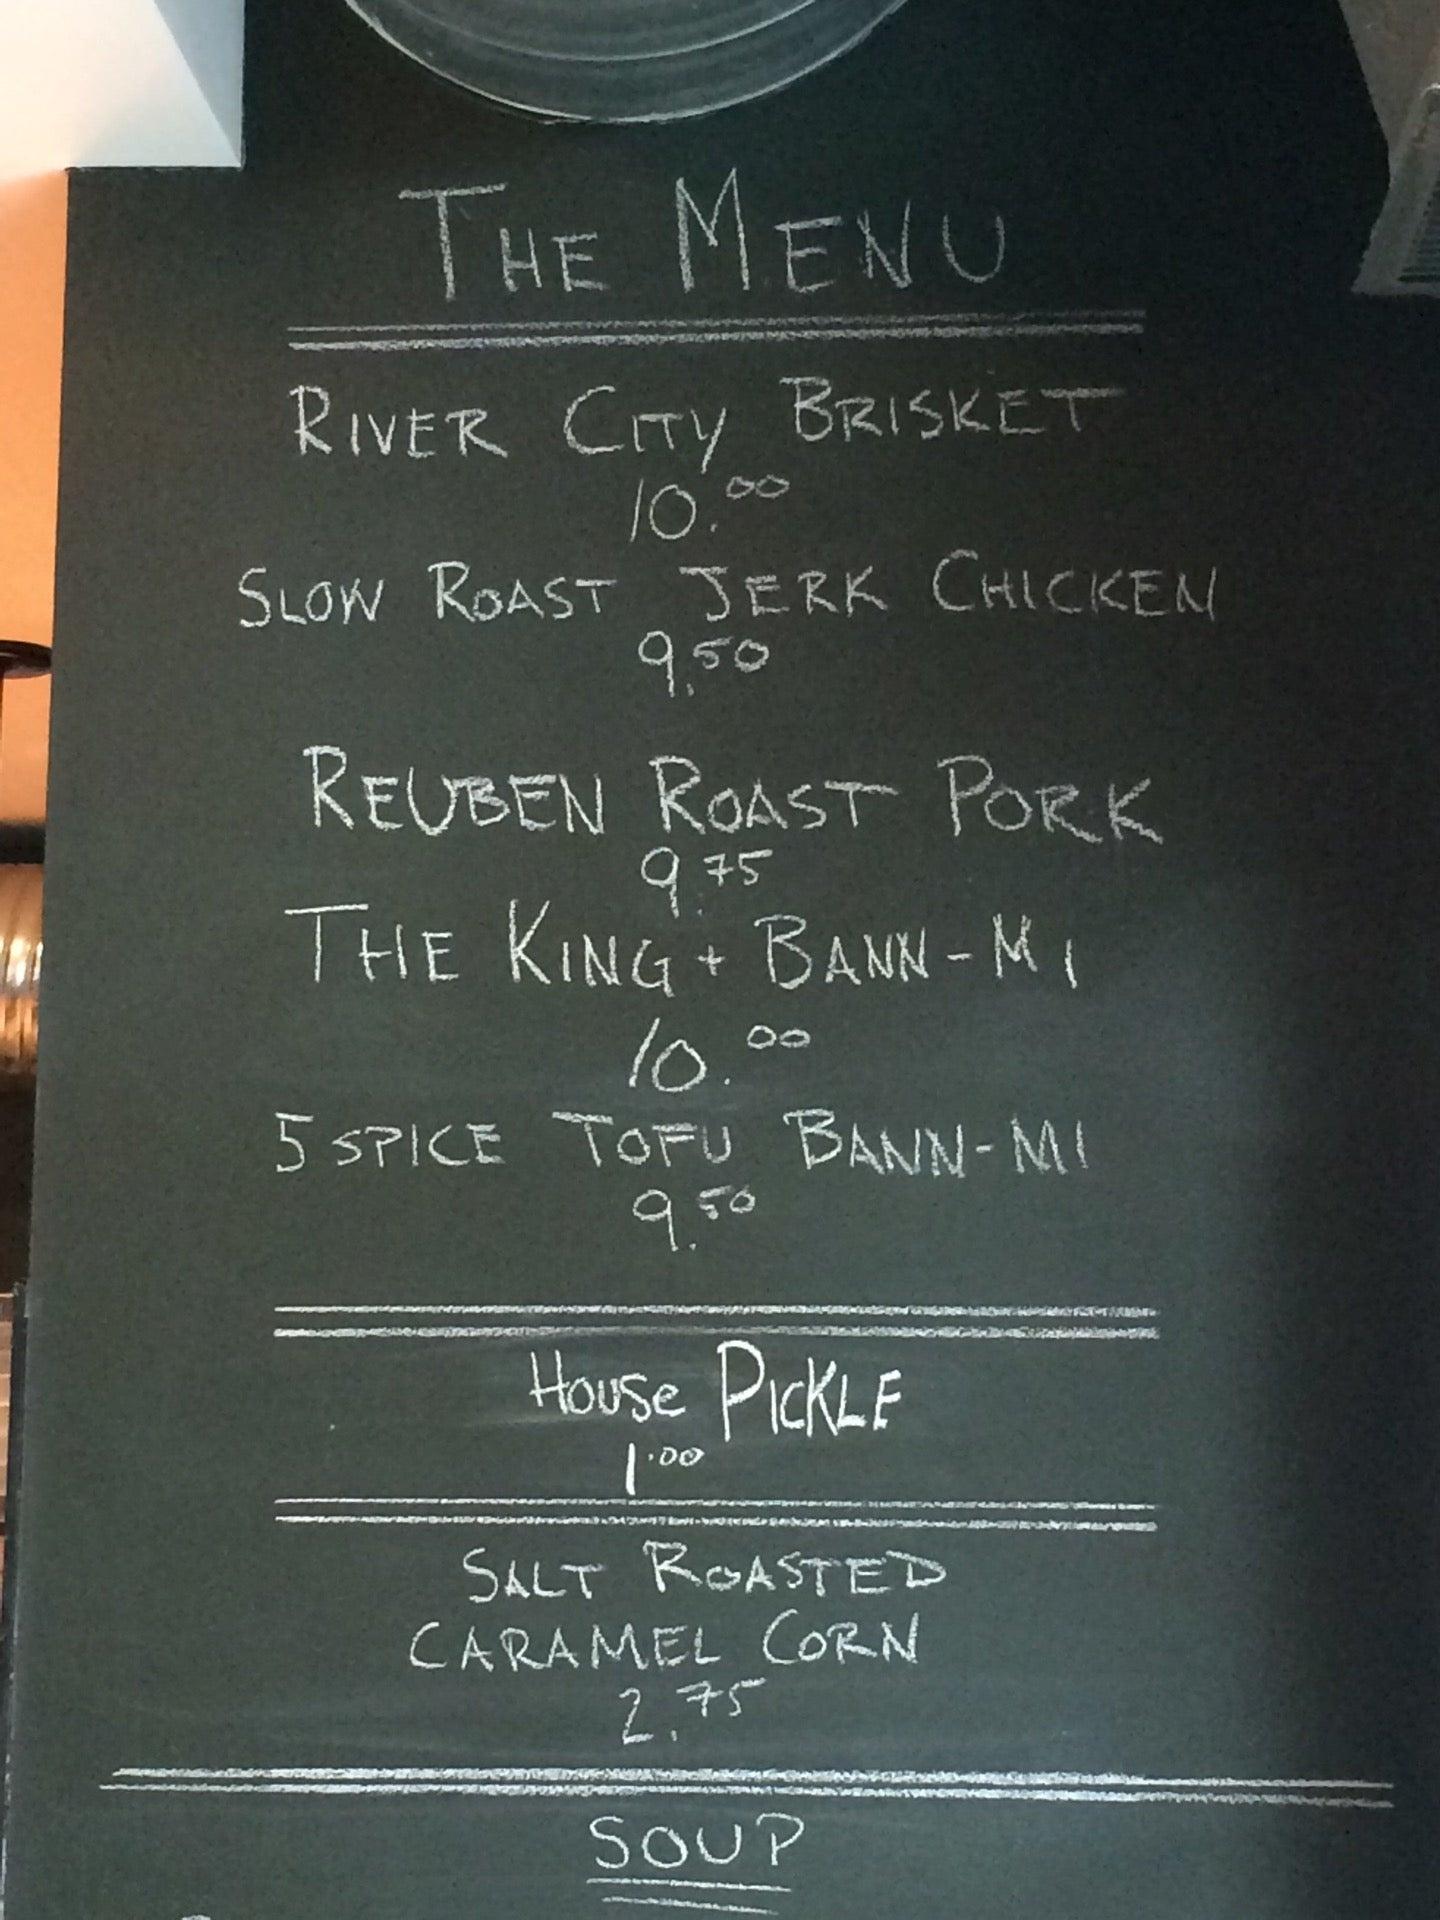 THE MENU
RIVER CITY BRISKET
10.00
SLOW ROAST JERK CHICKEN
9.50
REUBEN ROAST PORK
9.75
THE KING + BANN-MI
10.00
5 SPICE TOFU BANN-MI
9.50
HOUSe PICKLE
1.00
SALT ROASTED
CARAMEL CORN
2.75
SOUP